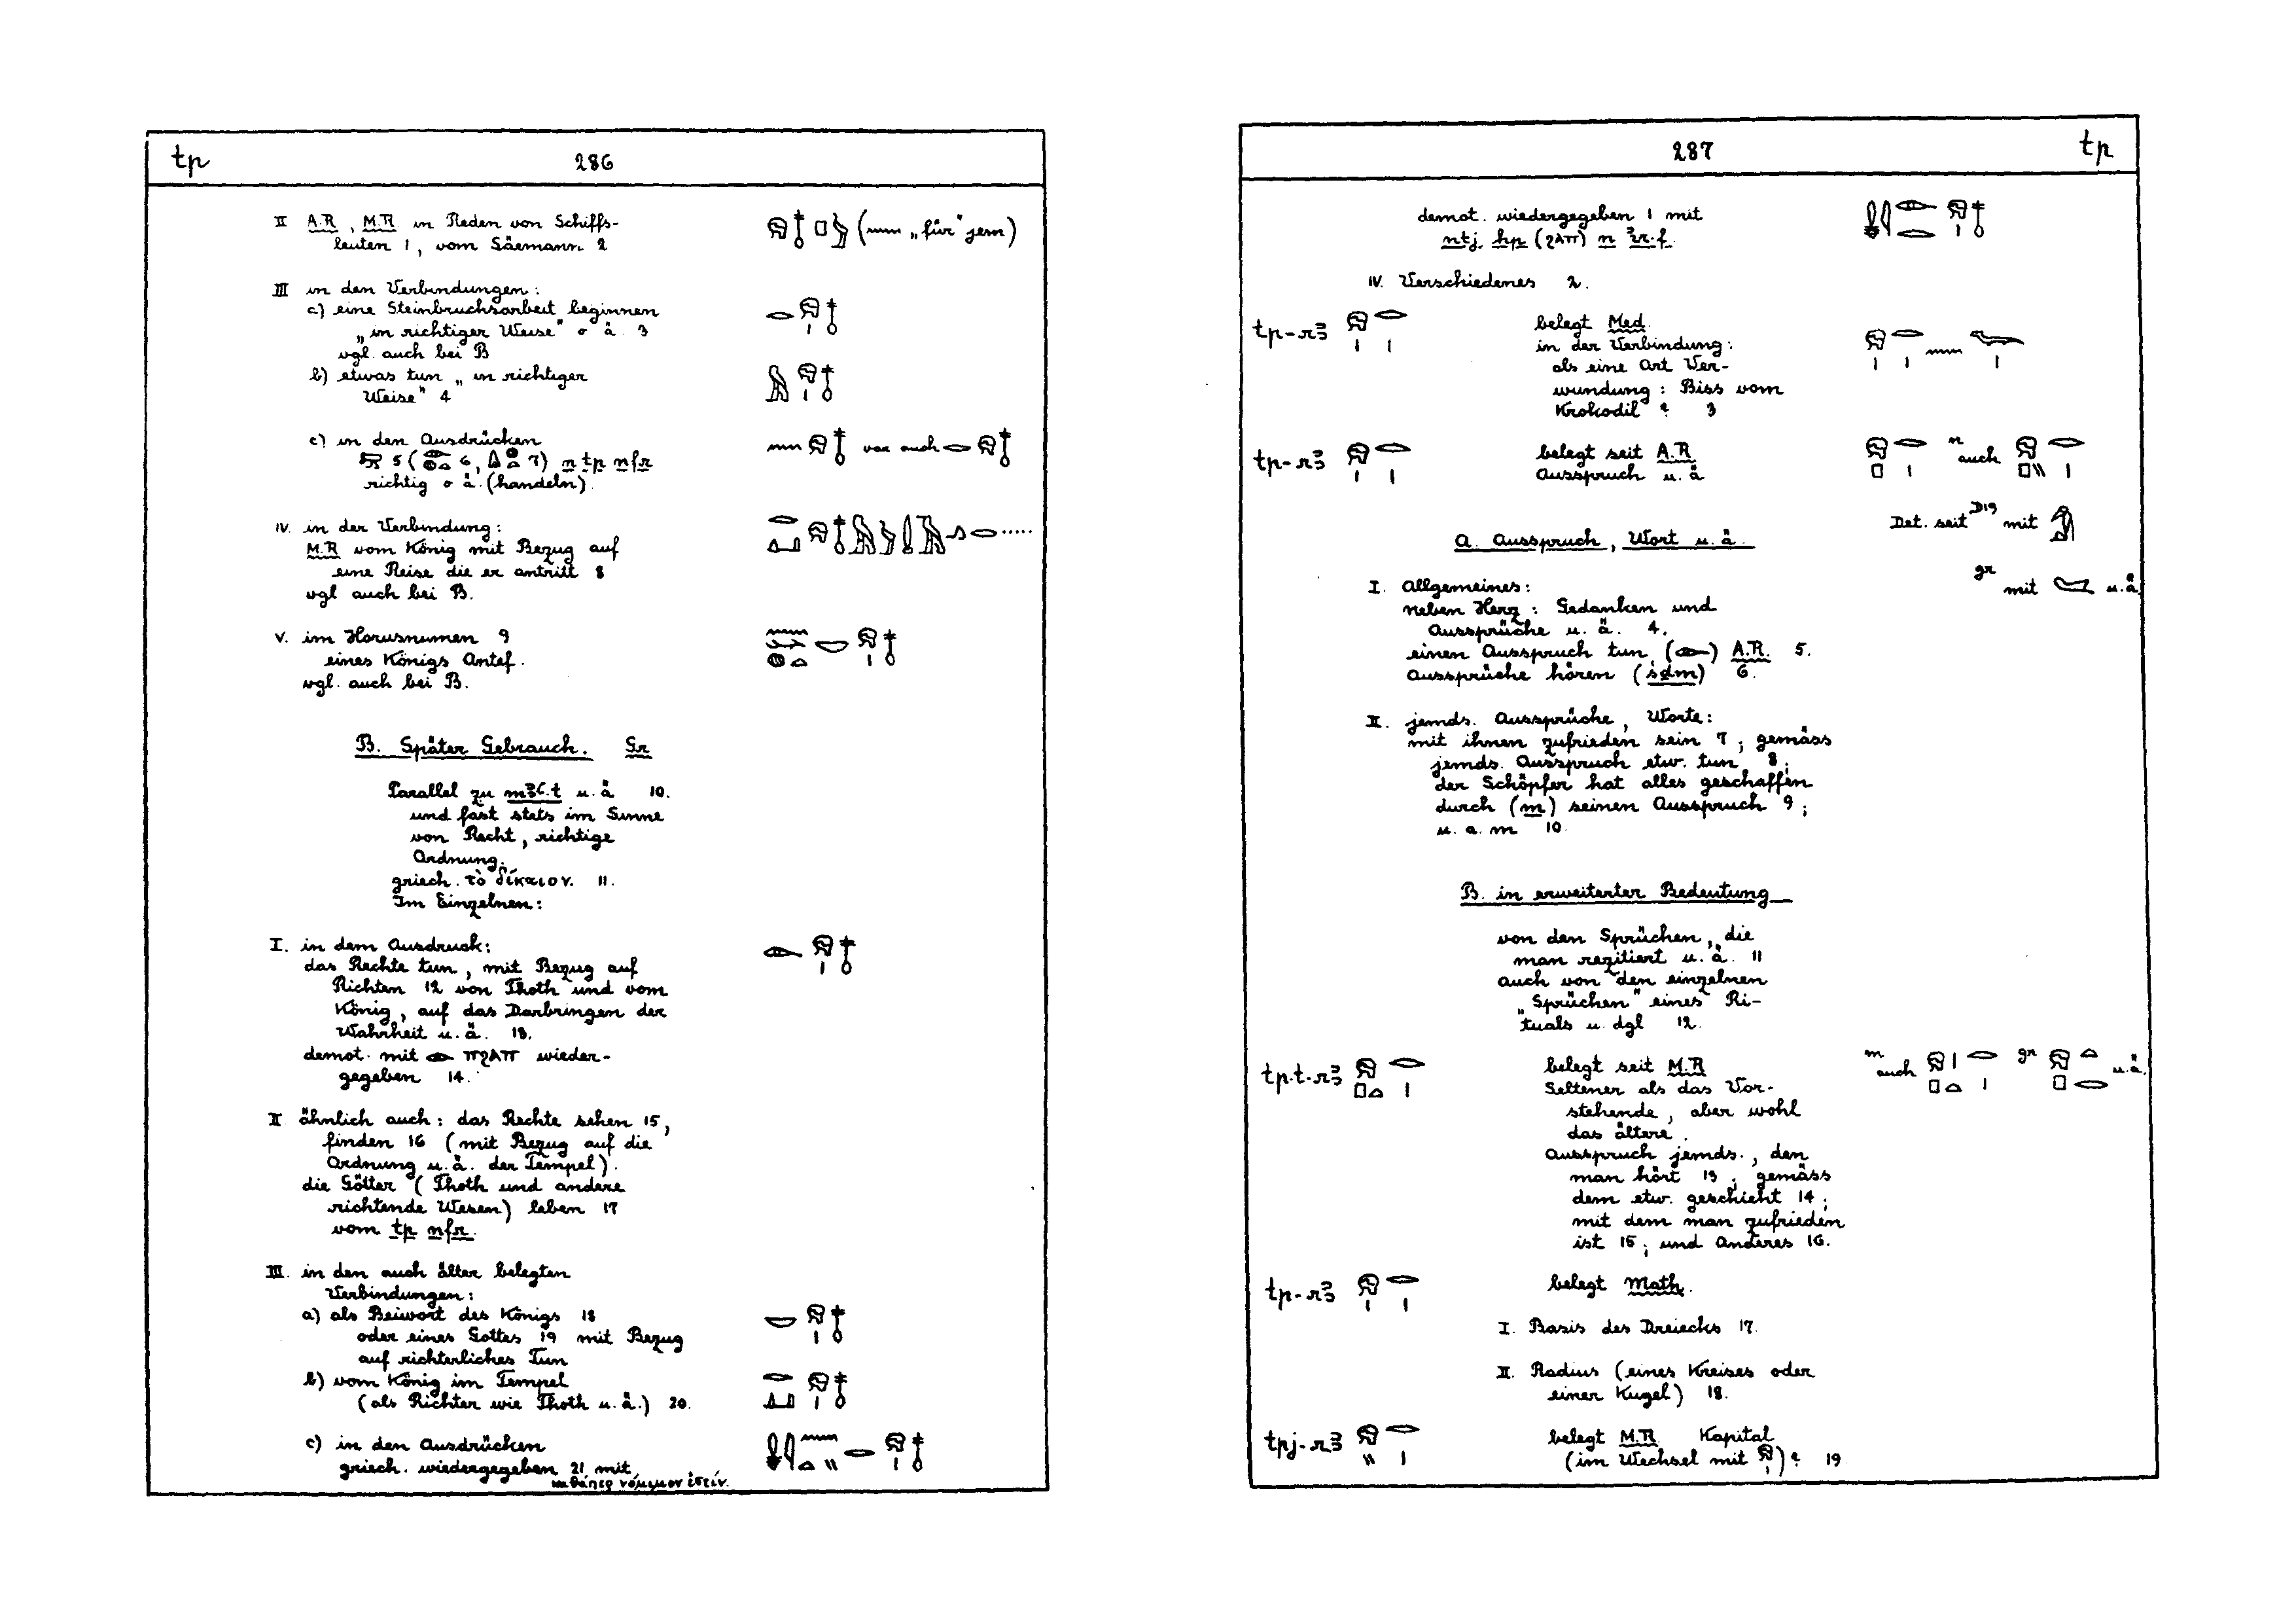 tp 286
II A.R, M.R in Reden von Schiffs-
leuten 1, vom Säemann 2
𓁶𓄤𓊪𓅱 (𓈖 „für" jem)
III in den Verbindungen:
a) eine Steinbruchsarbeit beginnen
„in richtiger Weise" o ä. 3
vgl. auch bei B
𓂋𓁶𓏤𓄤
b) etwas tun „in richtiger
Weise" 4
𓅓𓁶𓏤𓄤
c) in den Ausdrücken
5 (6, 7) n tp nfr
richtig o ä. (handeln)
𓈖𓁶𓄤 var auch 𓂋𓁶𓄤
IV. in der Verbindung:
M.R vom König mit Bezug auf
eine Reise die er antritt 8
vgl auch bei B.
V. im Horusnamen 9
eines Königs Antef.
vgl. auch bei B.
B. Später Gebrauch. Gr
Parallel zu mꜣꜥ.t u. ä 10.
und fast stets im Sinne
von Recht, richtige
Ordnung.
griech. τὸ δίκαιον. 11.
Im Einzelnen:
I. in dem Ausdruck:
das Rechte tun, mit Bezug auf
Richten 12 von Thoth und vom
König, auf das Darbringen der
Wahrheit u. ä. 13.
demot. mit 𓁹 ⲡϩⲁⲡ wieder-
gegeben 14.
𓁹𓁶𓏤𓄤
II ähnlich auch: das Rechte sehen 15,
finden 16 (mit Bezug auf die
Ordnung u. ä. der Tempel).
die Götter (Thoth und andere
richtende Wesen) leben 17
vom tp nfr.
III. in den auch älter belegten
Verbindungen:
a) als Beiwort des Königs 18
oder eines Gottes 19 mit Bezug
auf richterliches Tun
𓎟𓁶𓏤𓄤
b) vom König im Tempel
(als Richter wie Thoth u. ä.) 20.
𓂋𓂞𓁶𓏤𓄤
c) in den Ausdrücken
griech. wiedergegeben 21 mit
καθάπερ νόμιμον ἐστίν.
287 tp
demot. wiedergegeben 1 mit
ntj hp (ϩⲁⲡ) n ꜣr.f.
IV. Verschiedenes 2.
tp-rꜣ 𓁶𓏤𓂋𓏤 belegt Med.
in der Verbindung:
als eine Art Ver-
wundung: Biss vom
Krokodil ? 3
𓁶𓏤𓂋𓏤𓈖𓆊𓏤
tp-rꜣ 𓁶𓏤𓂋𓏤 belegt seit A.R
Ausspruch u. ä
𓁶𓊪𓂋𓏤 n auch 𓁶𓊪𓏭𓂋𓏤
Det. seit D19 mit 𓀁
gr mit 𓄹 u. ä
A. Ausspruch, Wort u. ä.
I. Allgemeines:
neben Herz: Gedanken und
Aussprüche u. ä. 4.
einen Ausspruch tun (𓁹) A.R. 5.
Aussprüche hören (śdm) 6.
II. jemds. Aussprüche, Worte:
mit ihnen zufrieden sein 7; gemäss
jemds. Ausspruch etw. tun 8;
der Schöpfer hat alles geschaffen
durch (m) seinen Ausspruch 9;
u. a. m 10.
B. in erweiterter Bedeutung
von den Sprüchen, die
man rezitiert u. ä. 11
auch von den einzelnen
„Sprüchen" eines Ri-
tuals u. dgl 12.
tp.t-rꜣ 𓁶𓊪𓏏𓂋𓏤 belegt seit M.R
Seltener als das Vor-
stehende, aber wohl
das ältere.
Ausspruch jemds., den
man hört 13; gemäss
dem etw. geschieht 14;
mit dem man zufrieden
ist 15; und Anderes 16.
m auch 𓁶𓏤𓊪𓏏𓂋𓏤 gr 𓁶𓏏𓊪𓂋 u. ä.
tp-rꜣ 𓁶𓏤𓂋𓏤 belegt Math.
I. Basis des Dreiecks 17.
II. Radius (eines Kreises oder
einer Kugel) 18.
tpj-rꜣ 𓁶𓏭𓂋𓏤 belegt M.R. Kapital
(im Wechsel mit 𓁶𓏤) ? 19